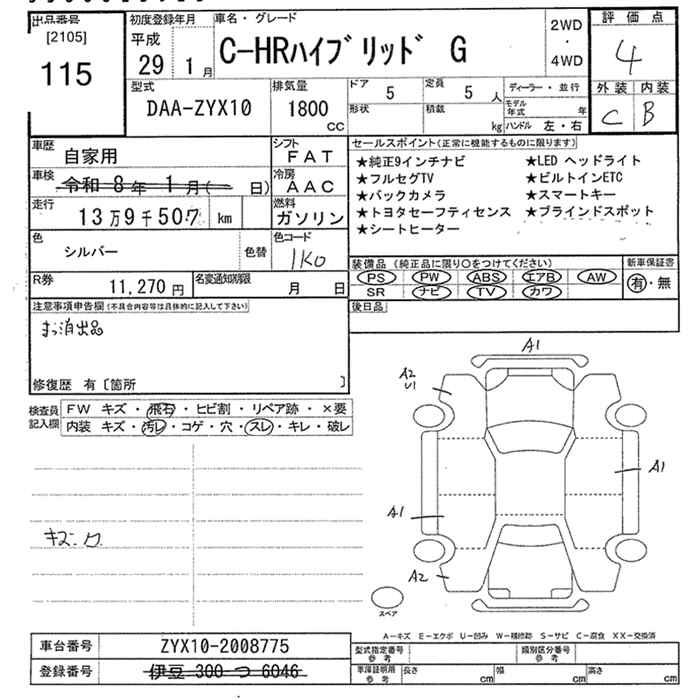 出品番号 初度登録年月 車名・グレード 評価点
[2105] 平成 2WD
115 29 1月 C-HRハイブリッド G ・ 4
4WD
型式 排気量 ドア 5 定員 5人 ディーラー・並行 外装 内装
DAA-ZYX10 1800cc 形状 積載 kg モデル年式 年 C B
ハンドル 左・右
車歴 自家用 シフト FAT セールスポイント(正常に機能するものに限ります)
車検 令和 8年 1月( 日) 冷房 AAC ★純正9インチナビ ★LED ヘッドライト
★フルセグTV ★ビルトインETC
走行 13万9千507 km 燃料 ガソリン ★バックカメラ ★スマートキー
★トヨタセーフティセンス ★ブラインドスポット
色 シルバー 色替 色コード 1K0 ★シートヒーター
装備品(純正品に限り○をつけてください) 新車保証書
R券 11,270円 名変通知期限 月 日 PS PW ABS エアB AW 有・無
SR ナビ TV カワ
注意事項申告欄(不具合内容等は具体的に記入して下さい) 後日品
まっ消出品
修復歴 有〔箇所 〕
検査員 FW キズ・飛石・ヒビ割・リペア跡・×要
記入欄 内装 キズ・汚レ・コゲ・穴・スレ・キレ・破レ
A1
A2
U1
A1
A1
キズ.ワ
A2
スペア
A1
A-キズ E-エクボ U-凹み W-補修跡 S-サビ C-腐食 XX-交換済
車台番号 ZYX10-2008775 型式指定番号 参考 類別区分番号 参考
登録番号 伊豆 300 つ 6046 車庫証明用 参考 長さ cm 幅 cm 高さ cm